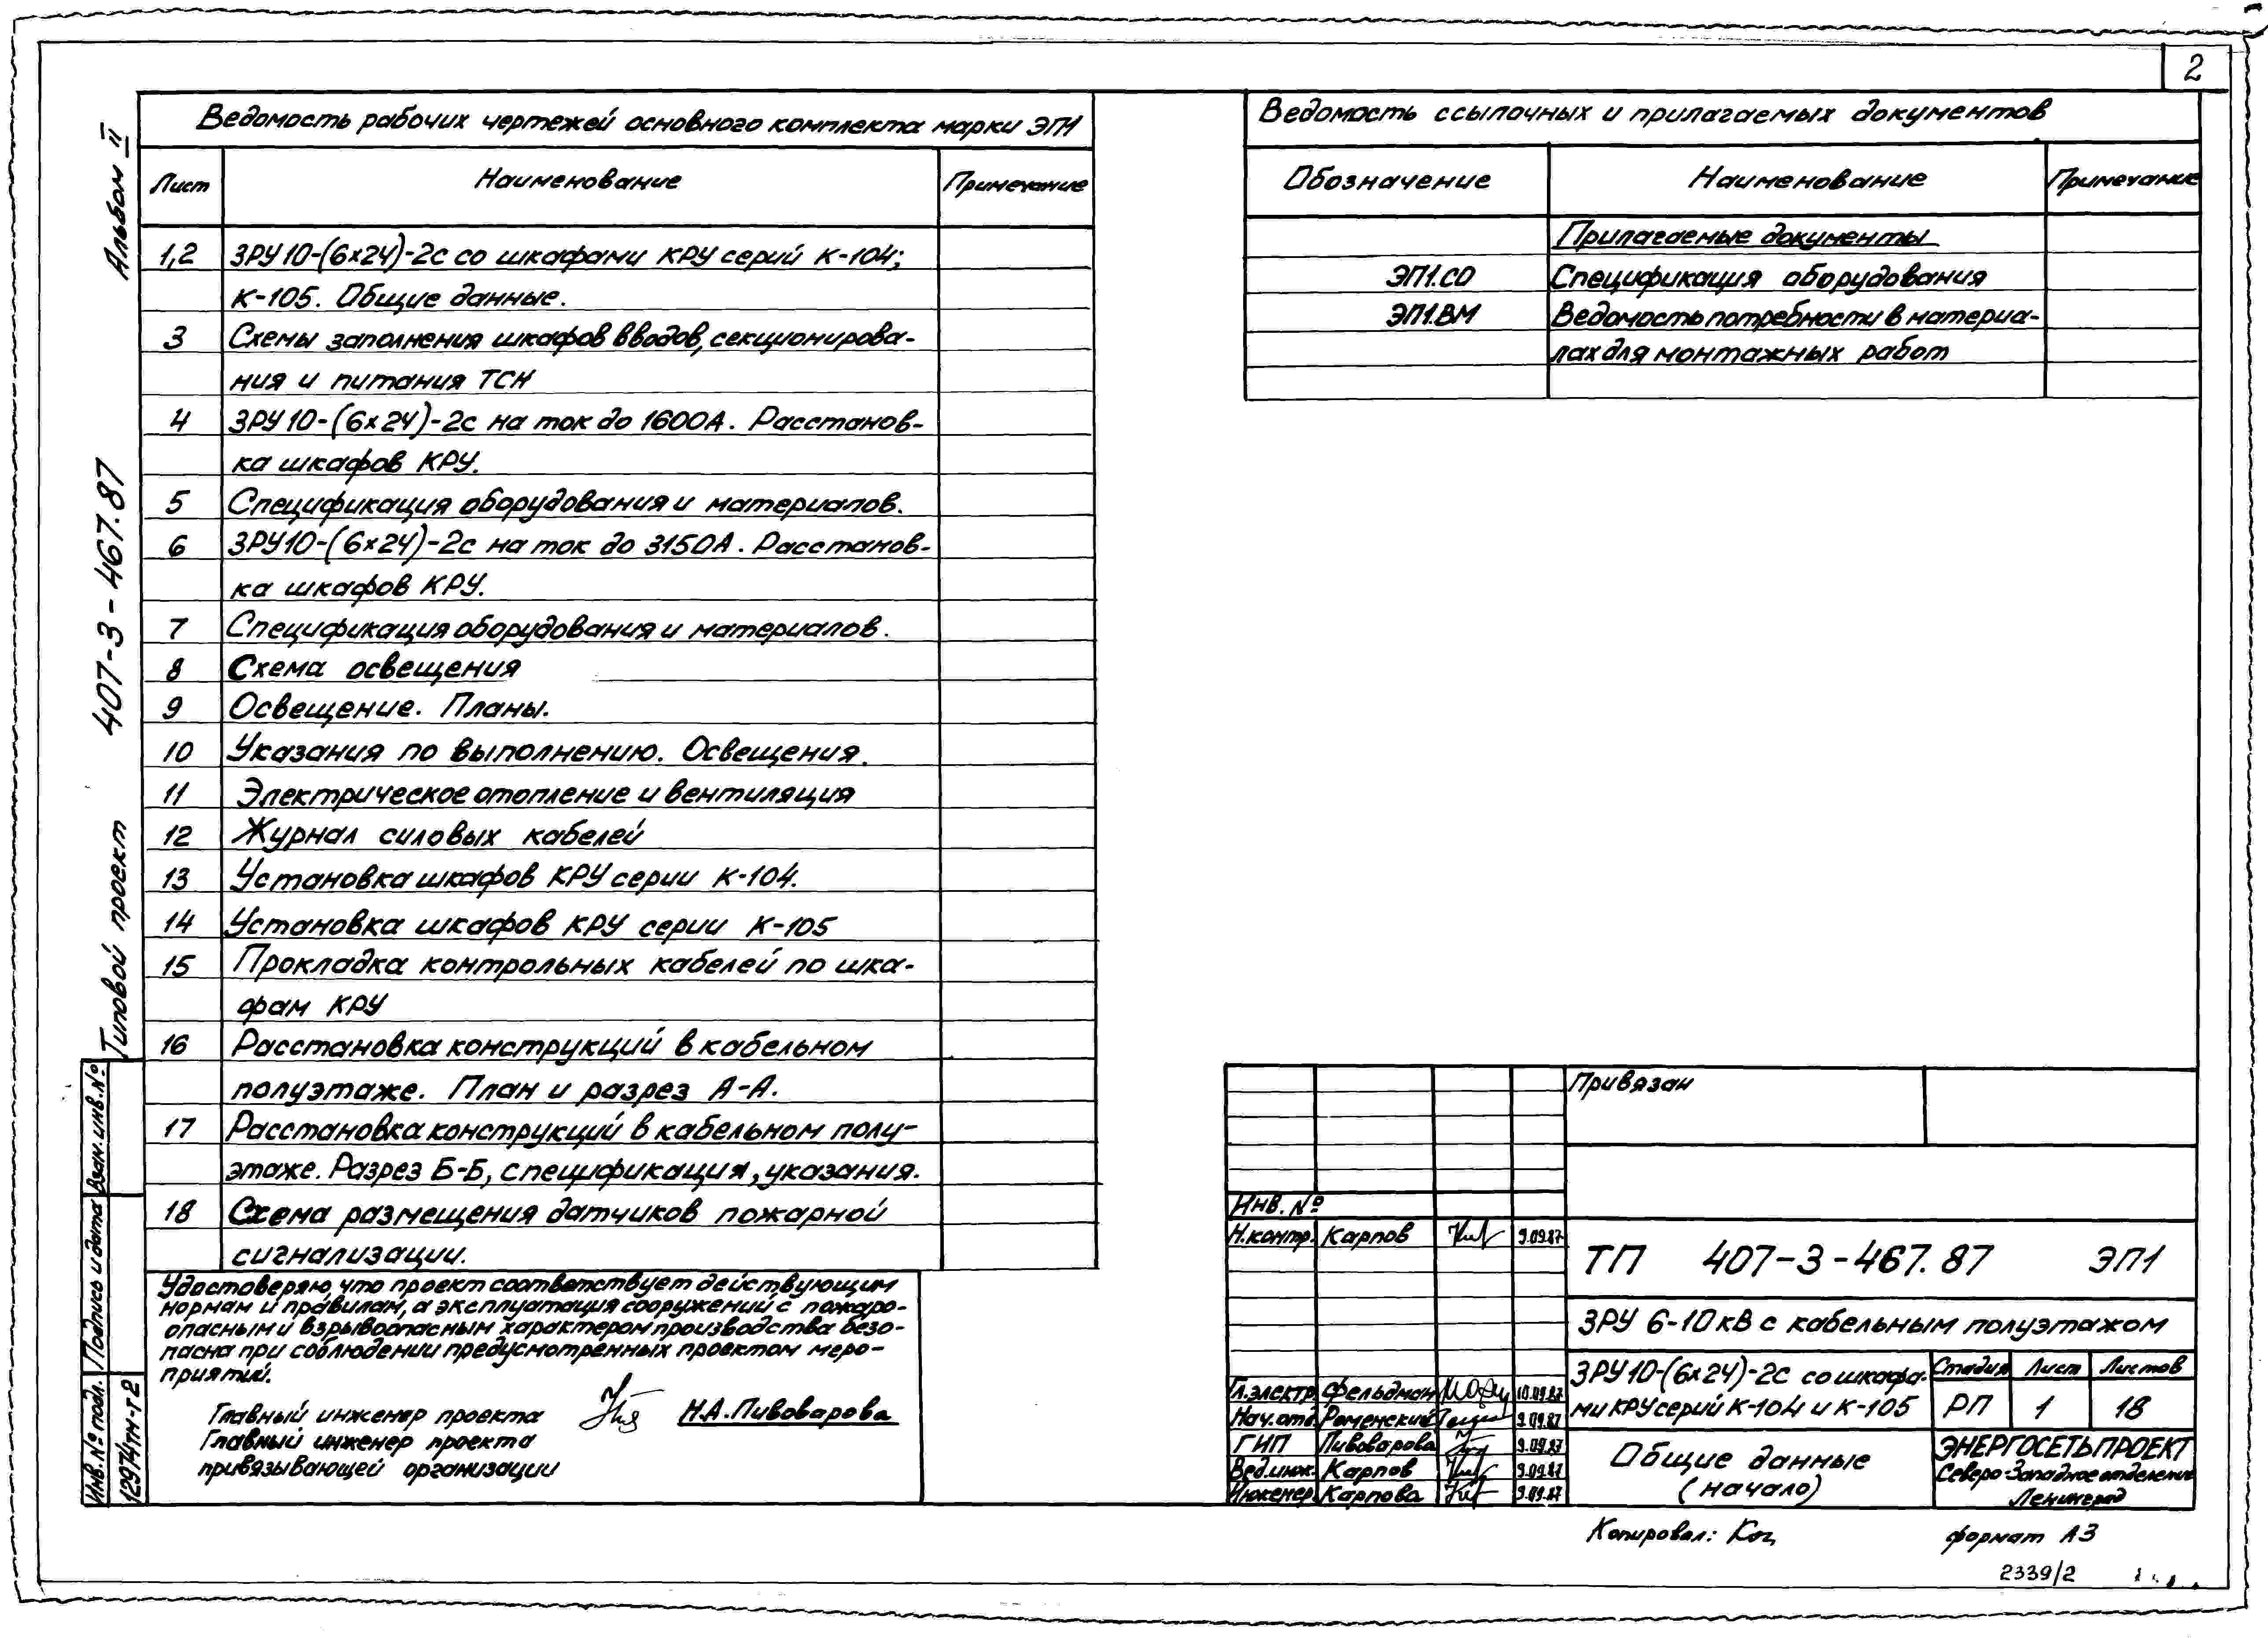 2
Альбом II
Типовой проект 407-3-467.87
Ведомость рабочих чертежей основного комплекта марки ЭП1
Лист Наименование Примечание
1,2 ЗРУ10-(6х24)-2с со шкафами КРУ серий К-104;
К-105. Общие данные.
3 Схемы заполнения шкафов вводов, секционирова-
ния и питания ТСН
4 ЗРУ10-(6х24)-2с на ток до 1600А. Расстанов-
ка шкафов КРУ.
5 Спецификация оборудования и материалов.
6 ЗРУ10-(6х24)-2с на ток до 3150А. Расстанов-
ка шкафов КРУ.
7 Спецификация оборудования и материалов.
8 Схема освещения
9 Освещение. Планы.
10 Указания по выполнению. Освещения.
11 Электрическое отопление и вентиляция
12 Журнал силовых кабелей
13 Установка шкафов КРУ серии К-104.
14 Установка шкафов КРУ серии К-105
15 Прокладка контрольных кабелей по шка-
фам КРУ
16 Расстановка конструкций в кабельном
полуэтаже. План и разрез А-А.
17 Расстановка конструкций в кабельном полу-
этаже. Разрез Б-Б, спецификация, указания.
18 Схема размещения датчиков пожарной
сигнализации.
Удостоверяю, что проект соответствует действующим
нормам и правилам, а эксплуатация сооружений с пожаро-
опасным и взрывоопасным характером производства безо-
пасна при соблюдении предусмотренных проектом меро-
приятий.
Главный инженер проекта Н.А.Пивоварова
Главный инженер проекта
привязывающей организации
Взам. инв. №
Подпись и дата
Инв. № подл. 12974тм-т2
Ведомость ссылочных и прилагаемых документов
Обозначение Наименование Примечание
Прилагаемые документы
ЭП1.СО Спецификация оборудования
ЭП1.ВМ Ведомость потребности в материа-
лах для монтажных работ
Привязан
Инв. №
Н.контр. Карпов 9.09.87
ТП 407-3-467.87 ЭП1
ЗРУ 6-10 кВ с кабельным полуэтажом
Гл.электр. Фельдман 10.09.87
Нач.отд. Роменский 9.09.87
ГИП Пивоварова 9.09.87
Вед.инж. Карпов 9.09.87
Инженер. Карпова 9.09.87
ЗРУ10-(6х24)-2с со шкафа-
ми КРУ серий К-104 и К-105
Стадия Лист Листов
РП 1 18
Общие данные
(начало)
ЭНЕРГОСЕТЬПРОЕКТ
Северо-Западное отделение
Ленинград
Копировал: формат А3
2339/2